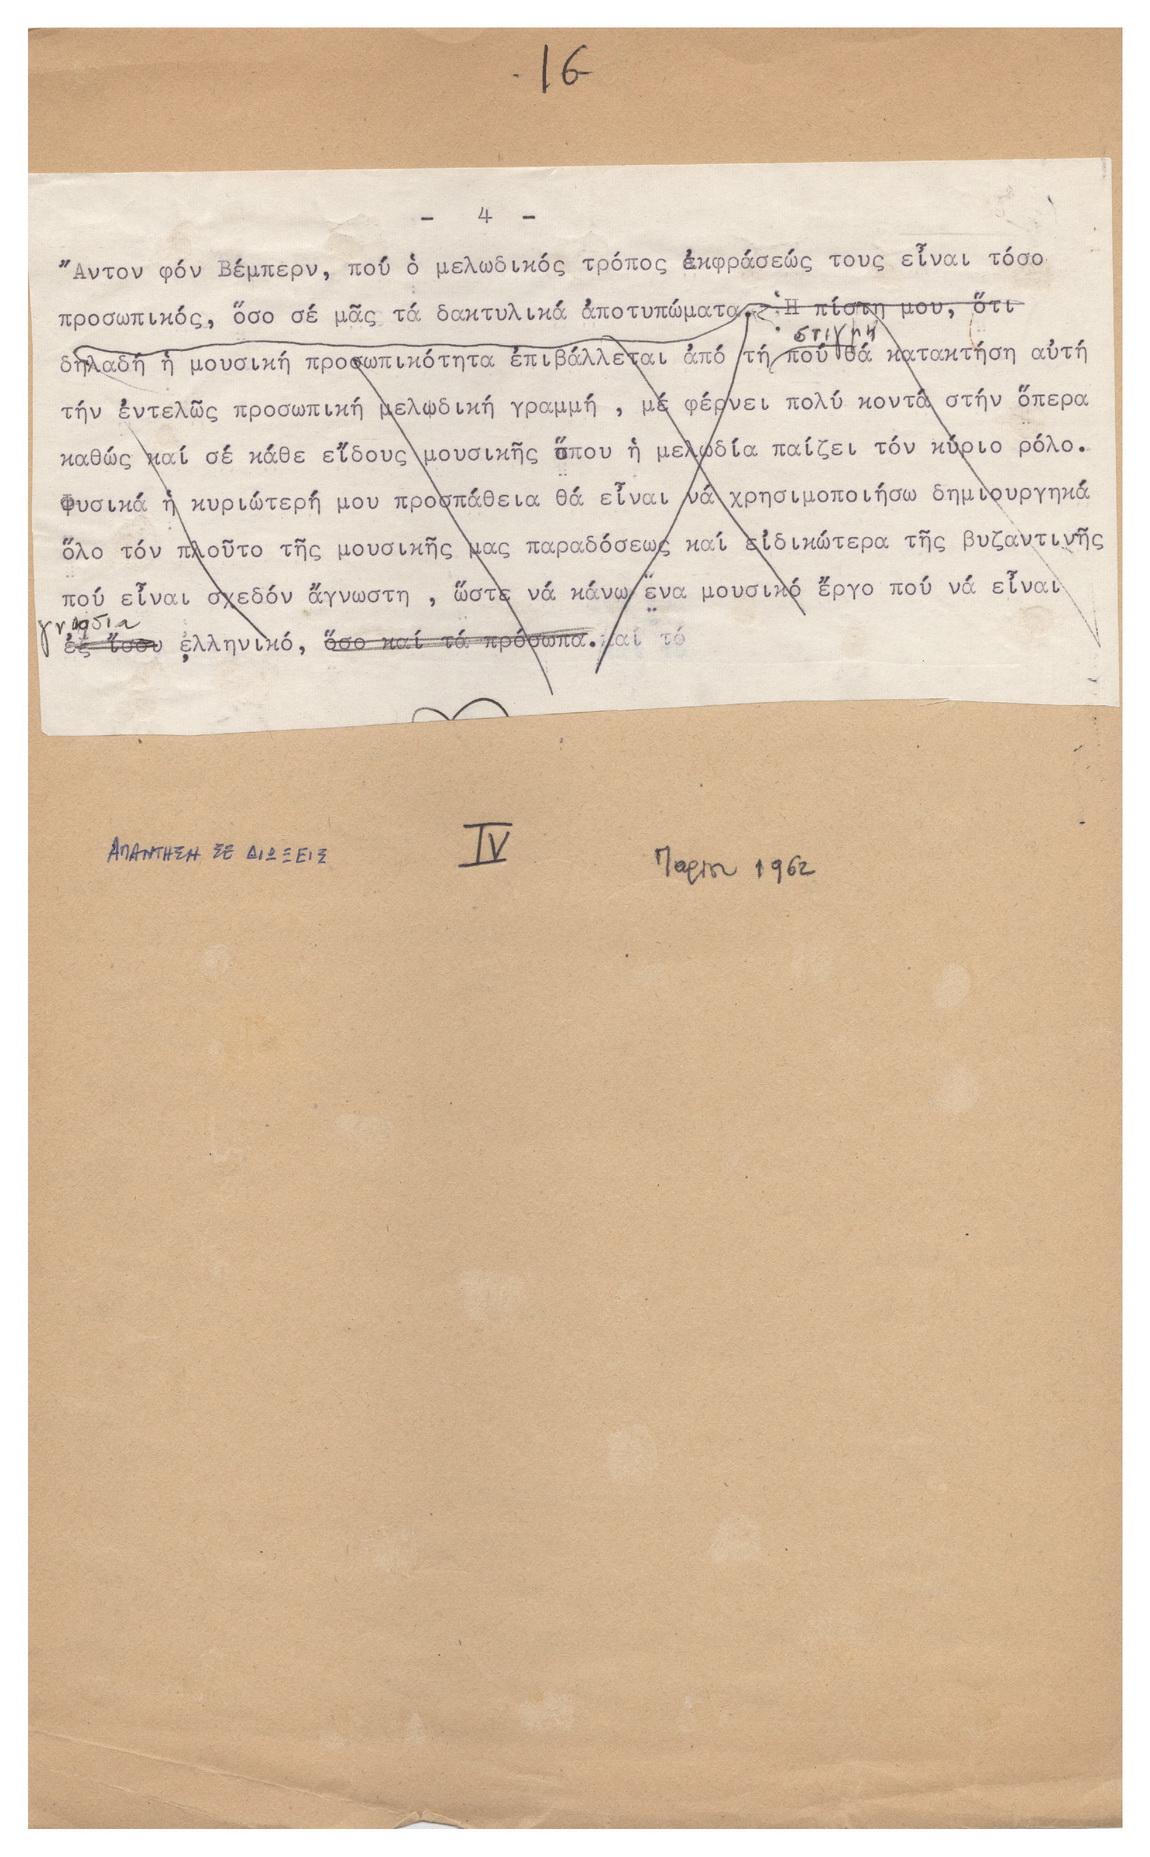 16
- 4 -
Ἄντον φόν Βέμπερν, πού ὁ μελωδικός τρόπος ἐκφράσεώς τους εἶναι τόσο
προσωπικός, ὅσο σέ μᾶς τά δακτυλικά ἀποτυπώματα. Ἡ πίστη μου, ὅτι
στιγμή
δηλαδή ἡ μουσική προσωπικότητα ἐπιβάλλεται ἀπό τή πού θά κατακτήση αὐτή
τήν ἐντελῶς προσωπική μελωδική γραμμή , μέ φέρνει πολύ κοντά στήν ὅπερα
καθώς καί σέ κάθε εἴδους μουσικῆς ὅπου ἡ μελωδία παίζει τόν κύριο ρόλο.
Φυσικά ἡ κυριώτερή μου προσπάθεια θά εἶναι νά χρησιμοποιήσω δημιουργηκά
ὅλο τόν πλοῦτο τῆς μουσικῆς μας παραδόσεως καί εἰδικώτερα τῆς βυζαντινῆς
πού εἶναι σχεδόν ἄγνωστη , ὥστε νά κάνω ἕνα μουσικό ἔργο πού νά εἶναι
γνήσια
ἐξ ἴσου ἑλληνικό, ὅσο καί τά πρόσωπα. καί τό
ΑΠΑΝΤΗΣΗ ΣΕ ΔΙΩΞΕΙΣ IV Παρίσι 1962